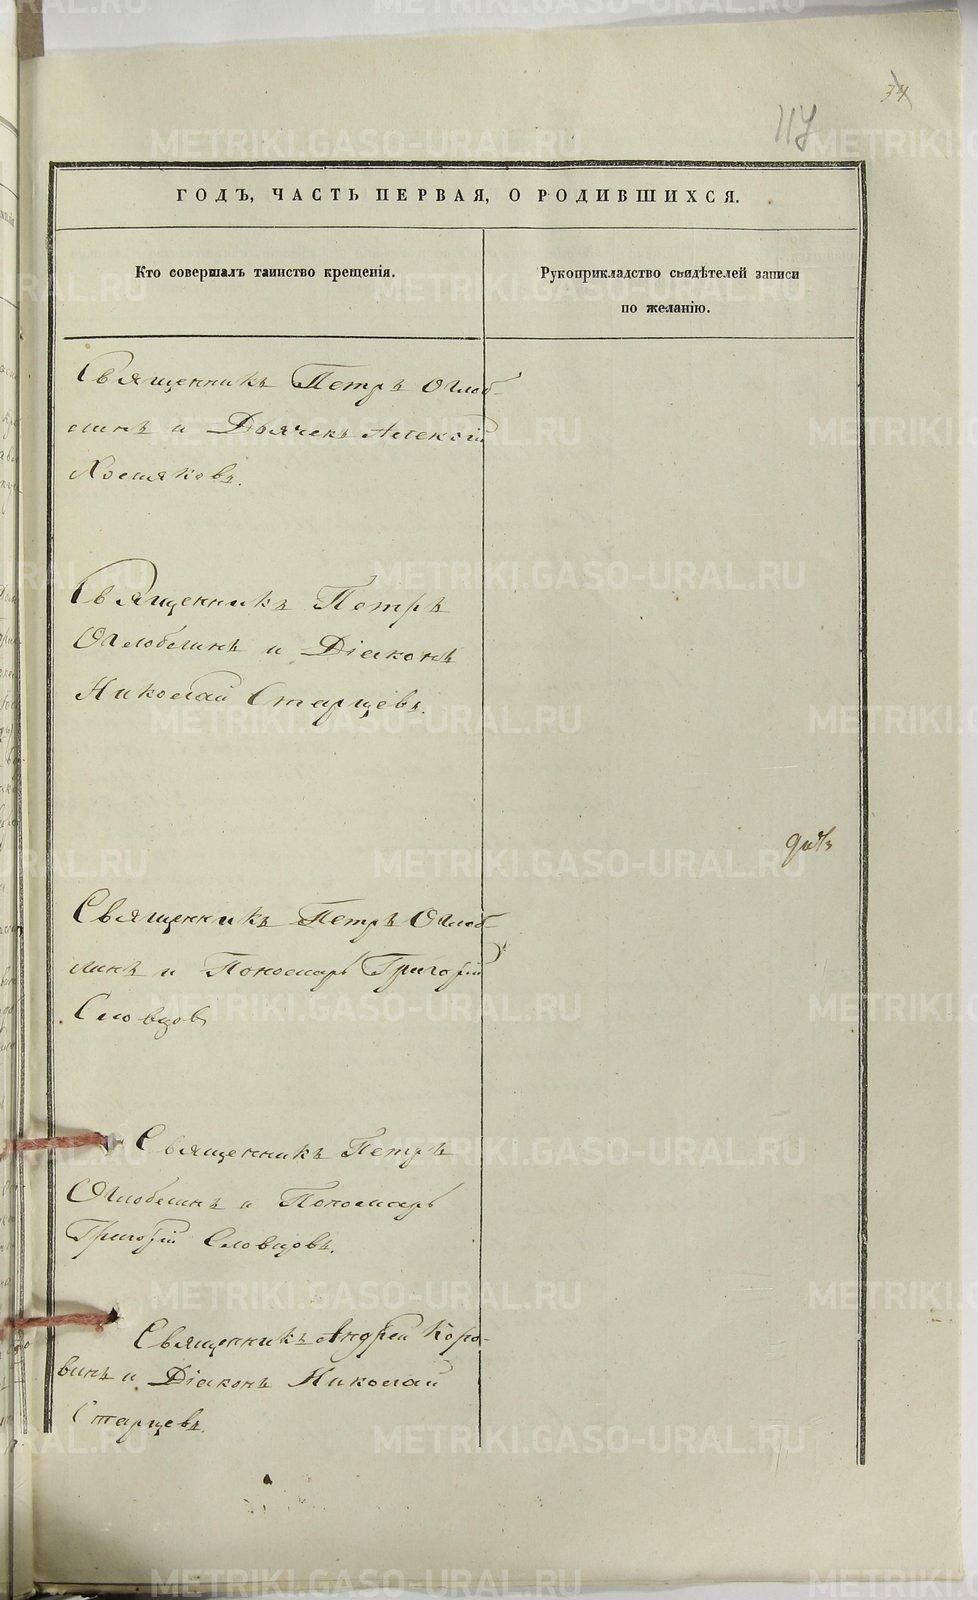 34
117
ГОДЪ, ЧАСТЬ ПЕРВАЯ, О РОДИВШИХСЯ.
Кто совершалъ таинство крещенія.
Рукоприкладство свидѣтелей записи
по желанію.
Священникъ Петръ Оглоб-
линъ и Дьячекъ Алексій
Хомяковъ.
Священникъ Петръ
Оглоблинъ и Діаконъ
Николай Старцевъ.
Священникъ Петръ Оглоб-
линъ и Пономарь Григорій
Словцов
Священникъ Петръ
Оглоблинъ и Пономарь
Григорій Словцовъ.
Священникъ Андрей Коро-
винъ и Діаконъ Николай
Старцевъ.
METRIKI.GASO-URAL.RU